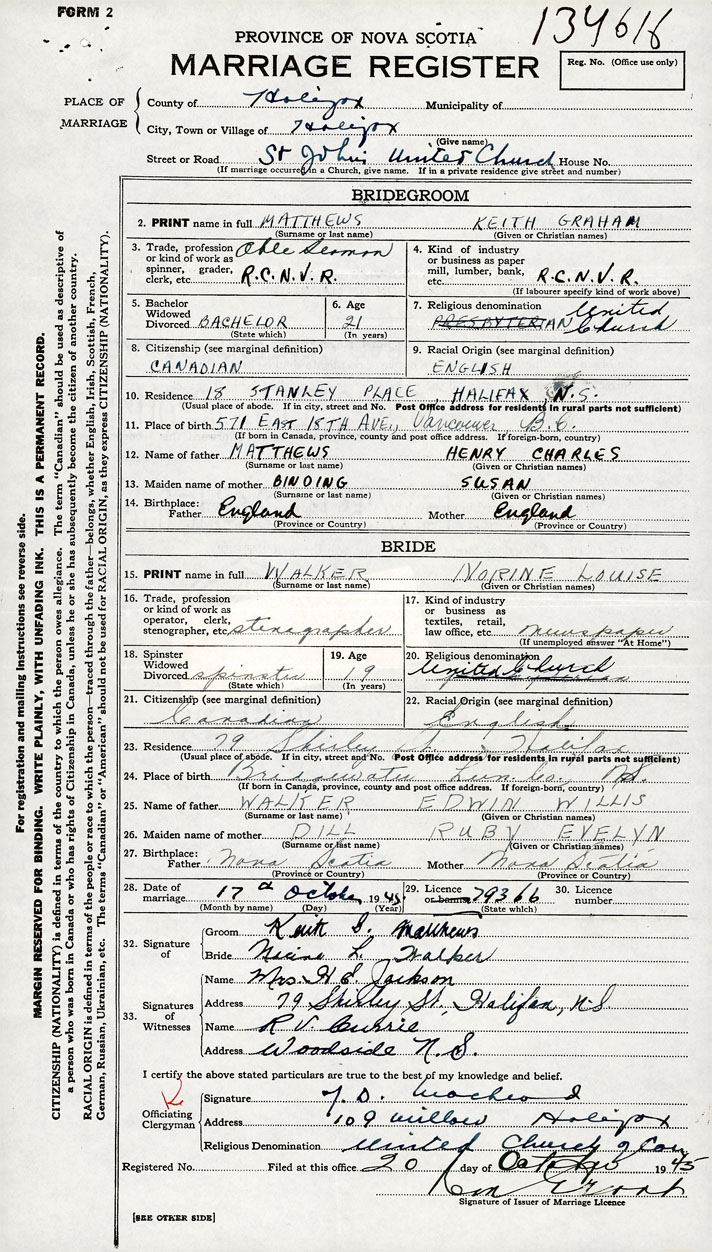 FORM 2
134616
PROVINCE OF NOVA SCOTIA
MARRIAGE REGISTER
Reg. No. (Office use only)
PLACE OF MARRIAGE
County of Halifax Municipality of
City, Town or Village of Halifax
(Give name)
Street or Road St John's United Church House No.
(If marriage occurred in a Church, give name. If in a private residence give street and number)
BRIDEGROOM
2. PRINT name in full MATTHEWS KEITH GRAHAM
(Surname or last name) (Given or Christian names)
3. Trade, profession or kind of work as spinner, grader, clerk, etc. Able Seaman R.C.N.V.R.
4. Kind of industry or business as paper mill, lumber, bank, etc. R.C.N.V.R.
(If labourer specify kind of work above)
5. Bachelor Widowed Divorced BACHELOR
(State which)
6. Age 21
(In years)
7. Religious denomination PRESBYTERIAN United Church
8. Citizenship (see marginal definition) CANADIAN
9. Racial Origin (see marginal definition) ENGLISH
10. Residence 18 STANLEY PLACE, HALIFAX N.S.
(Usual place of abode. If in city, street and No. Post Office address for residents in rural parts not sufficient)
11. Place of birth 571 EAST 18TH AVE., Vancouver, B.C.
(If born in Canada, province, county and post office address. If foreign-born, country)
12. Name of father MATTHEWS HENRY CHARLES
(Surname or last name) (Given or Christian names)
13. Maiden name of mother BINDING SUSAN
(Surname or last name) (Given or Christian names)
14. Birthplace: Father England Mother England
(Province or Country) (Province or Country)
BRIDE
15. PRINT name in full WALKER NORINE LOUISE
(Surname or last name) (Given or Christian names)
16. Trade, profession or kind of work as operator, clerk, stenographer, etc. stenographer
17. Kind of industry or business as textiles, retail, law office, etc. newspaper
(If unemployed answer "At Home")
18. Spinster Widowed Divorced spinster
(State which)
19. Age 19
(In years)
20. Religious denomination United Church
21. Citizenship (see marginal definition) Canadian
22. Racial Origin (see marginal definition) English
23. Residence 79 Shirley St., Halifax
(Usual place of abode. If in city, street and No. Post Office address for residents in rural parts not sufficient)
24. Place of birth Bridgewater Lun. Co., N.S.
(If born in Canada, province, county and post office address. If foreign-born, country)
25. Name of father WALKER EDWIN WILLIS
(Surname or last name) (Given or Christian names)
26. Maiden name of mother DILL RUBY EVELYN
(Surname or last name) (Given or Christian names)
27. Birthplace: Father Nova Scotia Mother Nova Scotia
(Province or Country) (Province or Country)
28. Date of marriage 17th October 1945
(Month by name) (Day) (Year)
29. Licence or banns 79366
(State which)
30. Licence number
32. Signature of
Groom Keith G. Matthews
Bride Norine L. Walker
33. Signatures of Witnesses
Name Mrs. H E. Jackson
Address 79 Shirley St., Halifax, N S
Name R V. Currie
Address Woodside N.S.
I certify the above stated particulars are true to the best of my knowledge and belief.
Officiating Clergyman
Signature
Address 109 Willow Halifax
Religious Denomination United Church of Can
Registered No. Filed at this office 20 day of October 1945
Signature of Issuer of Marriage Licence
[SEE OTHER SIDE]
For registration and mailing instructions see reverse side.
MARGIN RESERVED FOR BINDING. WRITE PLAINLY, WITH UNFADING INK. THIS IS A PERMANENT RECORD.
CITIZENSHIP (NATIONALITY) is defined in terms of the country to which the person owes allegiance. The term "Canadian" should be used as descriptive of
a person who was born in Canada or who has rights of Citizenship in Canada, unless he or she has subsequently become the citizen of another country.
RACIAL ORIGIN is defined in terms of the people or race to which the person—traced through the father—belongs, whether English, Irish, Scottish, French,
German, Russian, Ukrainian, etc. The terms "Canadian" or "American" should not be used for RACIAL ORIGIN, as they express CITIZENSHIP (NATIONALITY).